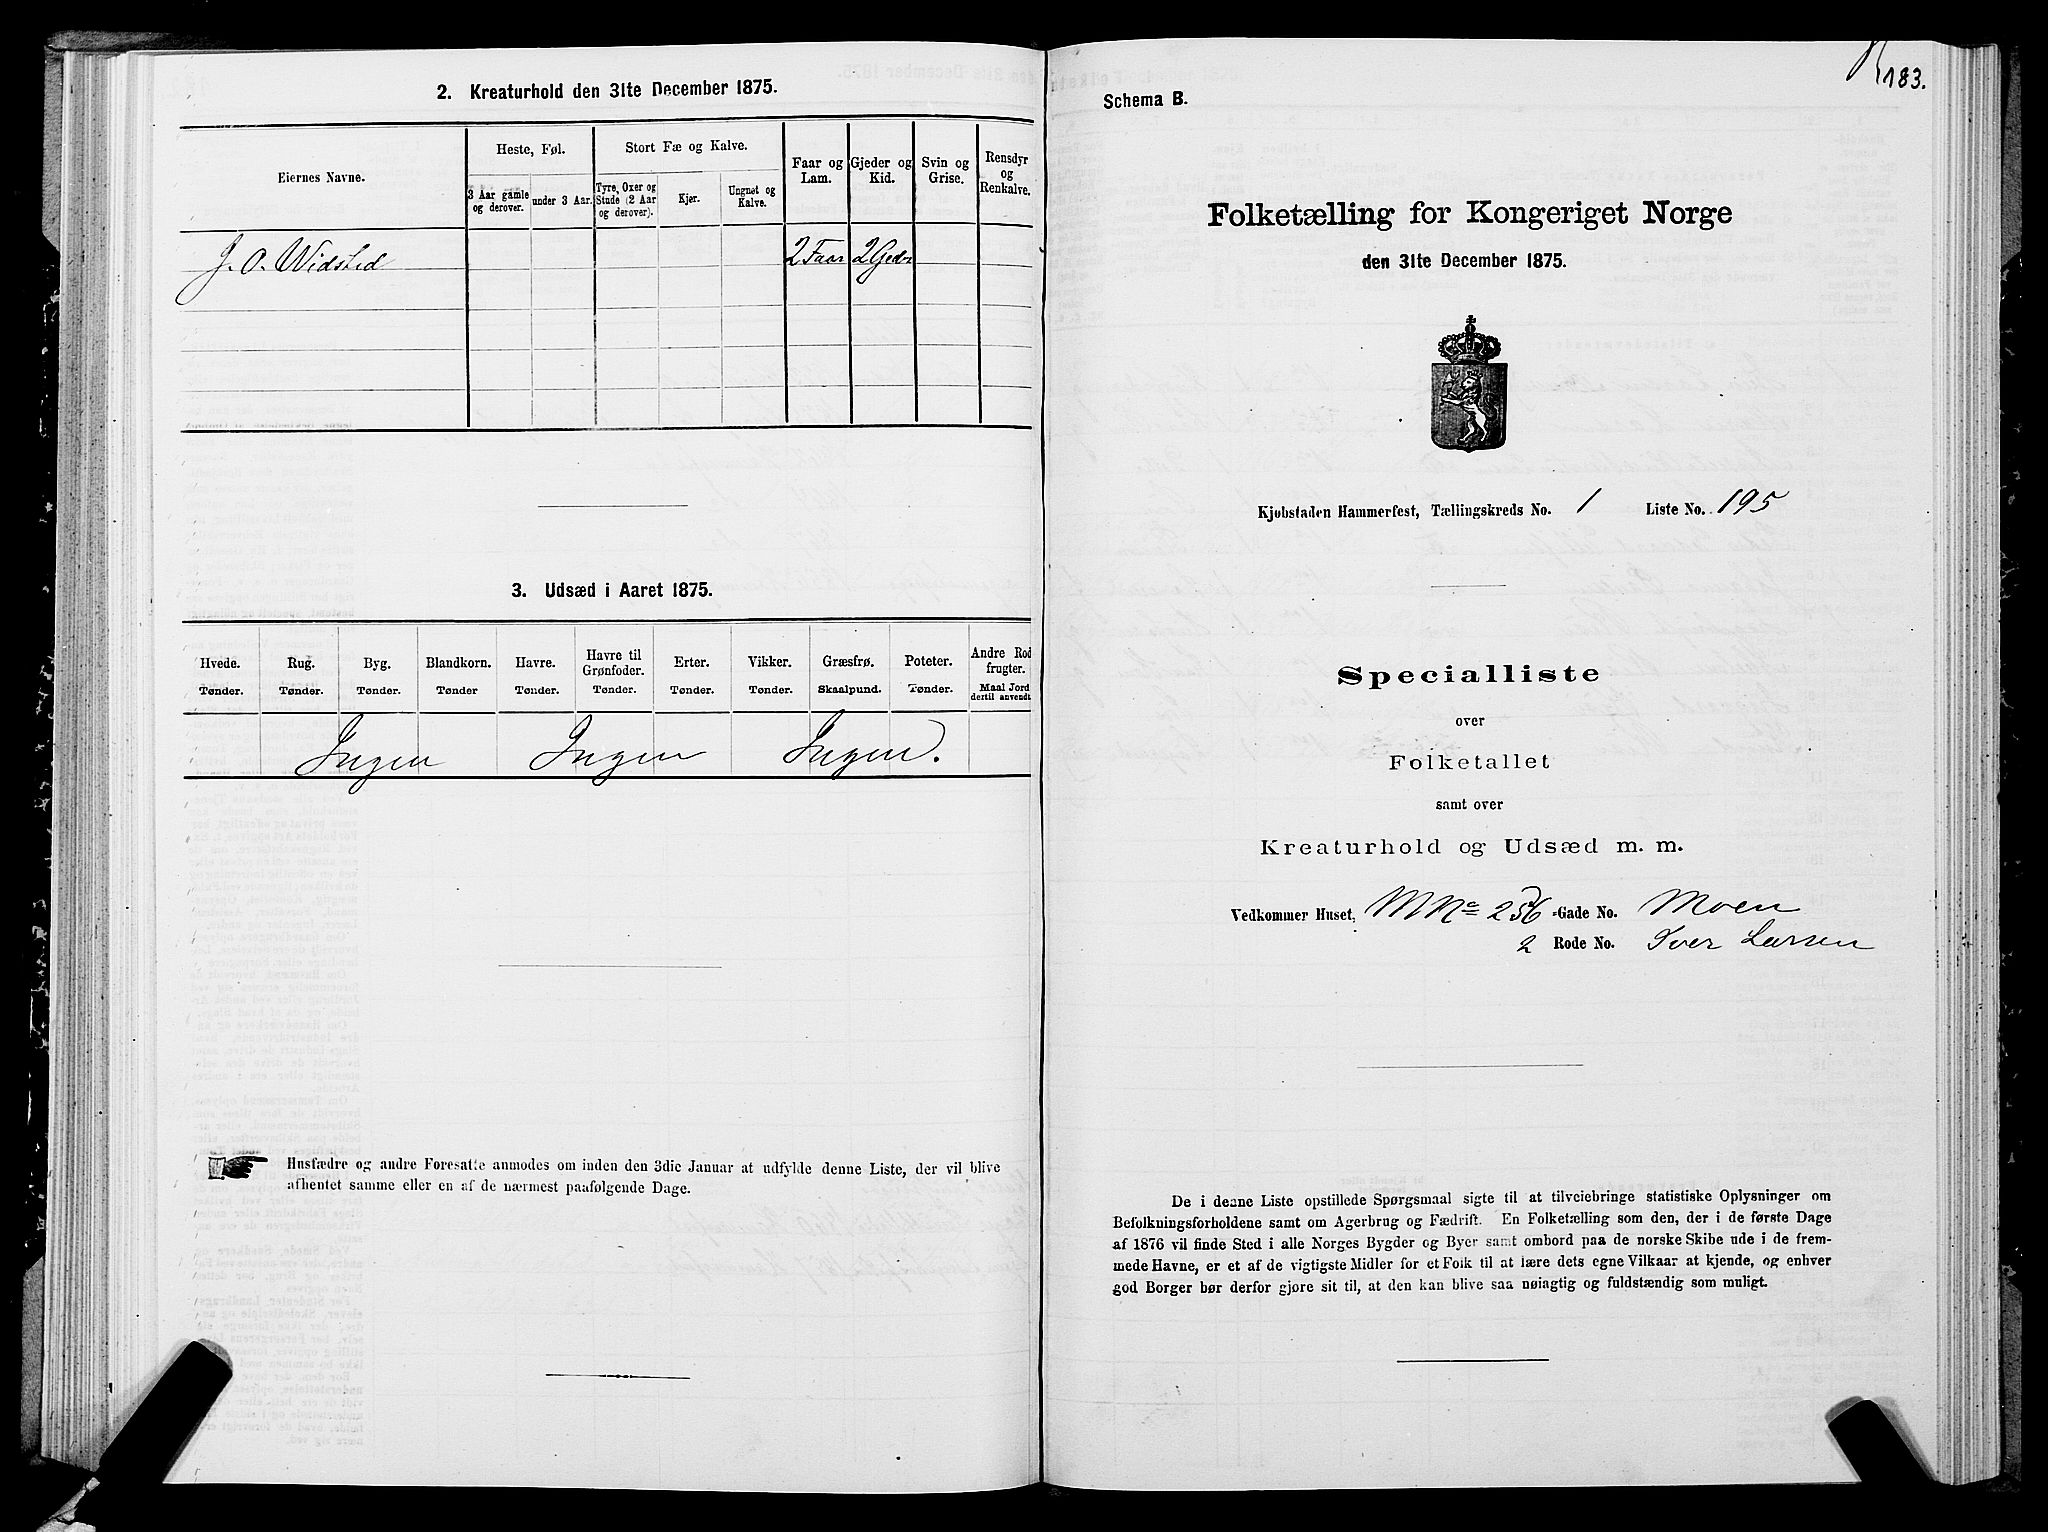 2. Kreaturhold den 31te December 1875.
Eiernes Navne.
Heste, Føl.
Stort Fæ og Kalve.
Faar og Lam.
Gjeder og Kid.
Svin og Grise.
Rensdyr og Renkalve.
3 Aar gamle og derover.
under 3 Aar.
Tyre, Oxer og Stude (2 Aar og derover).
Kjør.
Ungnøt og Kalve.
J. O. Widsted 2 Faar 2 Geder
3. Udsæd i Aaret 1875.
Hvede. Rug. Byg. Blandkorn. Havre. Havre til Grønfoder. Erter. Vikker. Græsfrø. Poteter. Andre Rodfrugter.
Tønder. Tønder. Tønder. Tønder Tønder. Tønder. Tønder. Tønder. Skaalpund. Tønder. Maal Jord dertil anvendt
Ingen Ingen Ingen.
Husfædre og andre Foresatte anmodes om inden den 3die Januar at udfylde denne Liste, der vil blive
afhentet samme eller en af de nærmest paafølgende Dage.
183.
Schema B.
Folketælling for Kongeriget Norge
den 31te December 1875.
Kjøbstaden Hammerfest, Tællingskreds No. 1 Liste No. 195
Specialliste
over
Folketallet
samt over
Kreaturhold og Udsæd m. m.
Vedkommer Huset, MNo 256 -Gade No. Moen
2 Rode No. Iver Larsen
De i denne Liste opstillede Spørgsmaal sigte til at tilveiebringe statistiske Oplysninger om
Befolkningsforholdene samt om Agerbrug og Fædrift. En Folketælling som den, der i de første Dage
af 1876 vil finde Sted i alle Norges Bygder og Byer samt ombord paa de norske Skibe ude i de frem-
mede Havne, er et af de vigtigste Midler for et Folk til at lære dets egne Vilkaar at kjende, og enhver
god Borger bør derfor gjøre sit til, at den kan blive saa nøiagtig og fuldstændig som muligt.